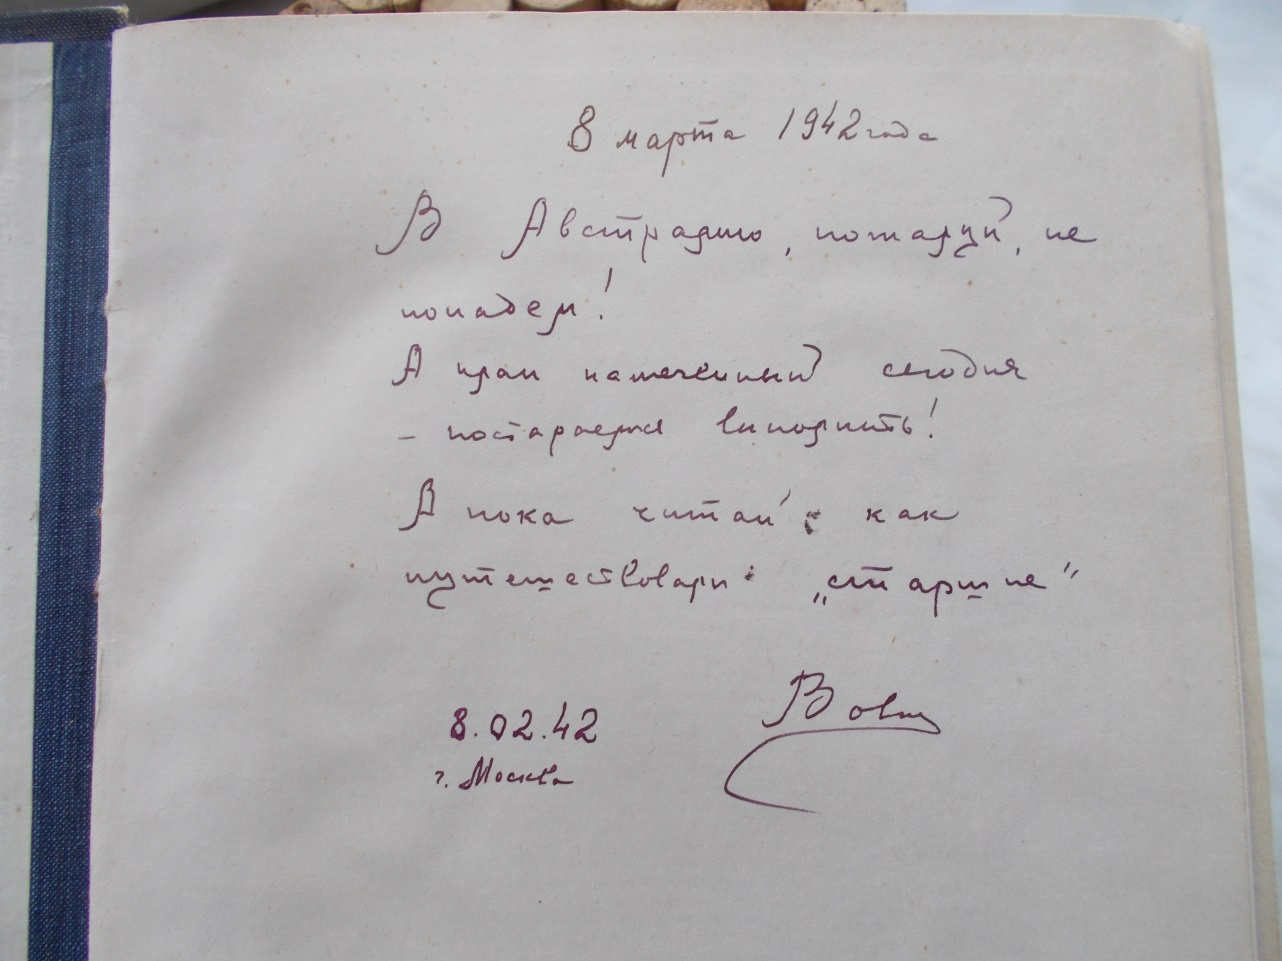 8 марта 1942 года
В Австралию, пожалуй, не
попадем!
А план намеченный сегодня
– постараемся выполнить!
А пока читай, как
путешествовали „старшие"
Вова
8.02.42
г. Москва